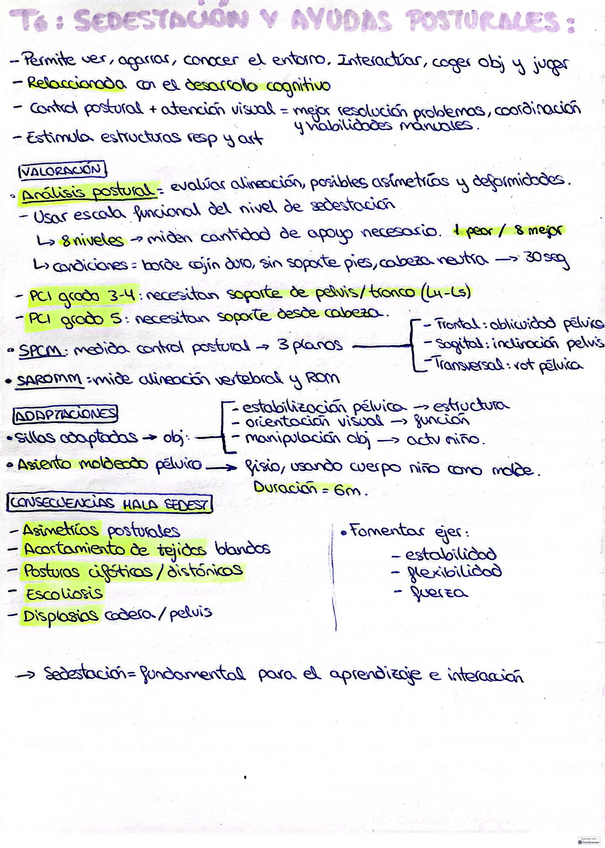 T6: SEDESTACIÓN Y AYUDAS POSTURALES:
- Permite ver, agarrar, conocer el entorno. Interactúar, coger obj y jugar
- Relaccionada con el desarrollo cognitivo
- Control postural + atención visual = mejor resolución problemas, coordinación
y habilidades manuales.
- Estimula estructuras resp y art
VALORACIÓN
• Análisis postural = evalúar alineación, posibles asimetrías y deformidades.
- Usar escala funcional del nivel de sedestación
↳ 8 niveles → miden cantidad de apoyo necesario. 1 peor / 8 mejor
↳ condiciones = borde cojín duro, sin soporte pies, cabeza neutra → 30 seg
- PCI grado 3-4: necesitan soporte de pelvis/tronco (L4-L5)
- PCI grado 5: necesitan soporte desde cabeza.
• SPCM: medida control postural → 3 planos
- Frontal: oblicuidad pélvica
- Sagital: inclinación pelvis
- Transversal: rot pélvica
• SAROMM = mide alineación vertebral y ROM
ADAPTACIONES
• Sillas adaptadas → obj:
- estabilización pélvica → estructura
- orientación visual → función
- manipulación obj → actv niño.
• Asiento moldeado pélvico → fisio, usando cuerpo niño como molde.
Duración = 6m.
CONSECUENCIAS MALA SEDEST
- Asimetrías posturales
- Acortamiento de tejidos blandos
- Posturas cifóticas / distónicas
- Escoliosis
- Displasias cadera / pelvis
• Fomentar ejer:
- estabilidad
- flexibilidad
- fuerza
→ Sedestación = fundamental para el aprendizaje e interacción